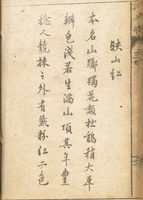 映山紅
本名山躑躅花類杜鵑稍大單
瓣色淺若生滿山頂其年豐
稔人競採之外有紫粉紅二色